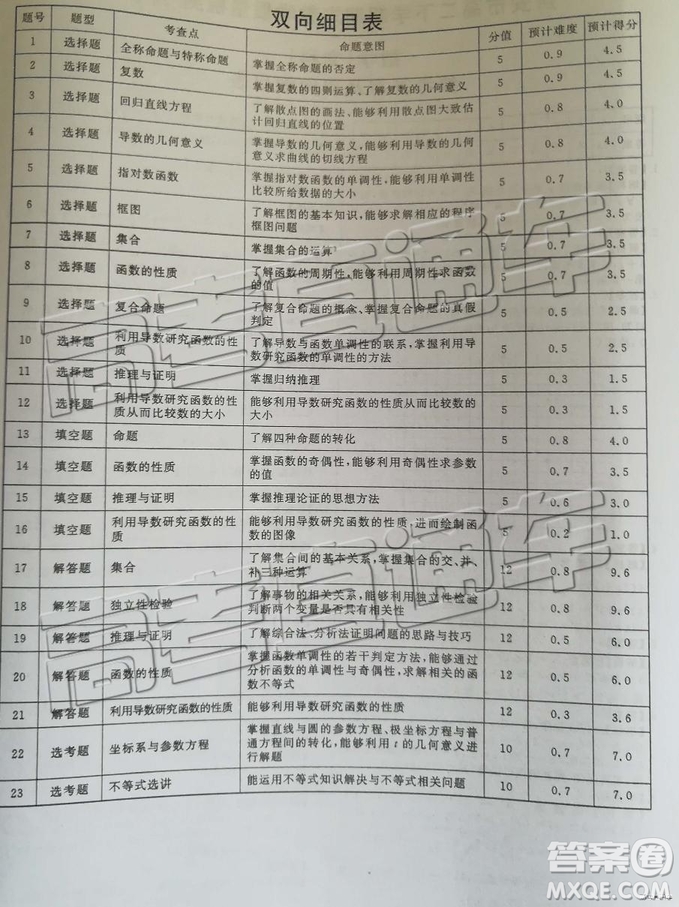 双向细目表
题号 题型 考查点 命题意图 分值 预计难度 预计得分
1 选择题 全称命题与特称命题 掌握全称命题的否定 5 0.9 4.5
2 选择题 复数 掌握复数的四则运算、了解复数的几何意义 5 0.9 4.5
3 选择题 回归直线方程 了解散点图的画法,能够利用散点图大致估
计回归直线的位置 5 0.8 4.0
4 选择题 导数的几何意义 掌握导数的几何意义,能够利用导数的几何
意义求曲线的切线方程 5 0.8 4.0
5 选择题 指对数函数 掌握指对数函数的单调性,能够利用单调性
比较所给数据的大小 5 0.7 3.5
6 选择题 框图 了解框图的基本知识,能够求解相应的程序
框图问题 5 0.7 3.5
7 选择题 集合 掌握集合的运算 5 0.7 3.5
8 选择题 函数的性质 了解函数的周期性,能够利用周期性求函数
的值 5 0.7 3.5
9 选择题 复合命题 了解复合命题的概念、掌握复合命题的真假
判定 5 0.5 2.5
10 选择题 利用导数研究函数的性
质 了解导数与函数单调性的联系,掌握利用导
数研究函数的单调性的方法 5 0.5 2.5
11 选择题 推理与证明 掌握归纳推理 5 0.3 1.5
12 选择题 利用导数研究函数的性
质从而比较数的大小 能够利用导数研究函数的性质从而比较数的大小 5 0.3 1.5
13 填空题 命题 了解四种命题的转化 5 0.8 4.0
14 填空题 函数的性质 掌握函数的奇偶性,能够利用奇偶性求参数
的值 5 0.7 3.5
15 填空题 推理与证明 掌握推理论证的思想方法 5 0.6 3.0
16 填空题 利用导数研究函数的性质 能够利用导数研究函数的性质,进而绘制函
数的图像 5 0.2 1.0
17 解答题 集合 了解集合间的基本关系,掌握集合的交、并、
补三种运算 12 0.8 9.6
18 解答题 独立性检验 了解事物的相关关系,能够利用独立性检验
判断两个变量是否具有相关性 12 0.8 9.6
19 解答题 推理与证明 了解综合法、分析法证明问题的思路与技巧 12 0.5 6.0
20 解答题 函数的性质 掌握函数单调性的若干判定方法,能够通过
分析函数的单调性与奇偶性,求解相关的函
数不等式 12 0.5 6.0
21 解答题 利用导数研究函数的性质 能够利用导数研究函数的性质 12 0.3 3.6
22 选考题 坐标系与参数方程 掌握直线与圆的参数方程、极坐标方程与普
通方程间的转化,能够利用t的几何意义进行
解题 10 0.7 7.0
23 选考题 不等式选讲 能运用不等式知识解决与不等式相关问题 10 0.7 7.0
高考直通车
高考直通车
答案圈
MXQE.COM